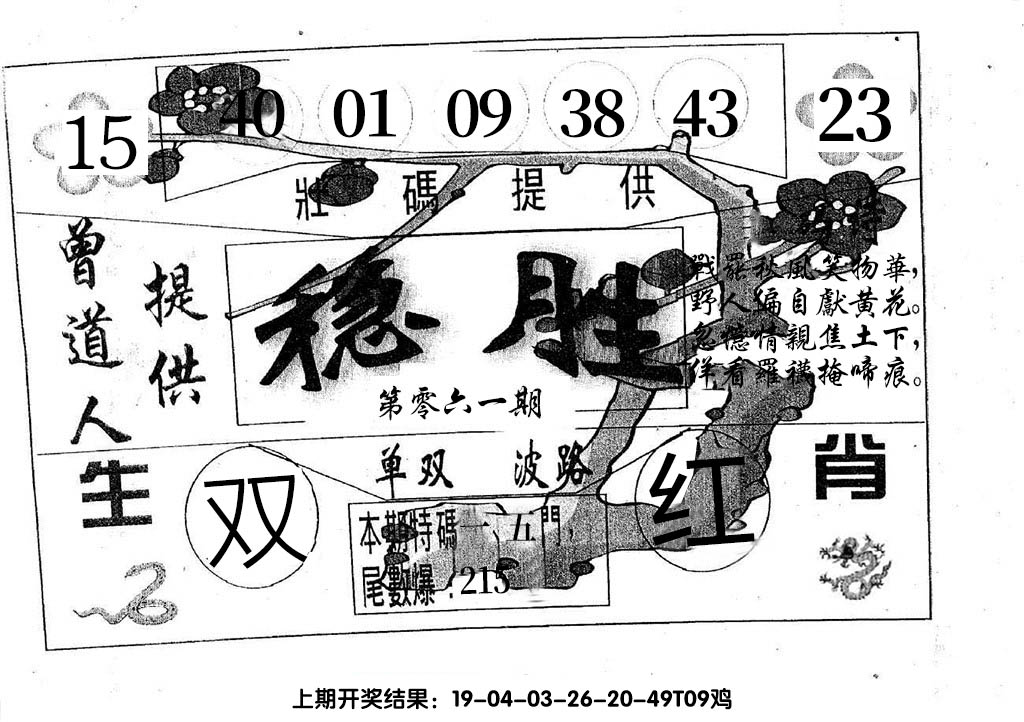 15 40 01 09 38 43 23
壯碼提供
特
曾道人
提供
稳胜
第零六一期
戰罷秋風笑物華，
野人偏自獻黄花。
忽憶情親焦土下，
佯看羅襪掩啼痕。
单双 波路
生肖
双 红
本期特碼一、五門，
尾數爆：215
上期开奖结果：19-04-03-26-20-49T09鸡